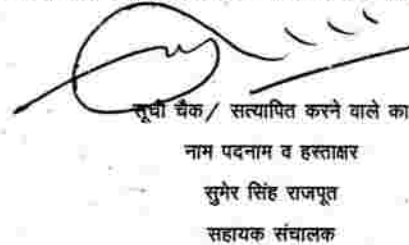 सूची चैक / सत्यापित करने वाले का
नाम पदनाम व हस्ताक्षर
सुमेर सिंह राजपूत
सहायक संचालक